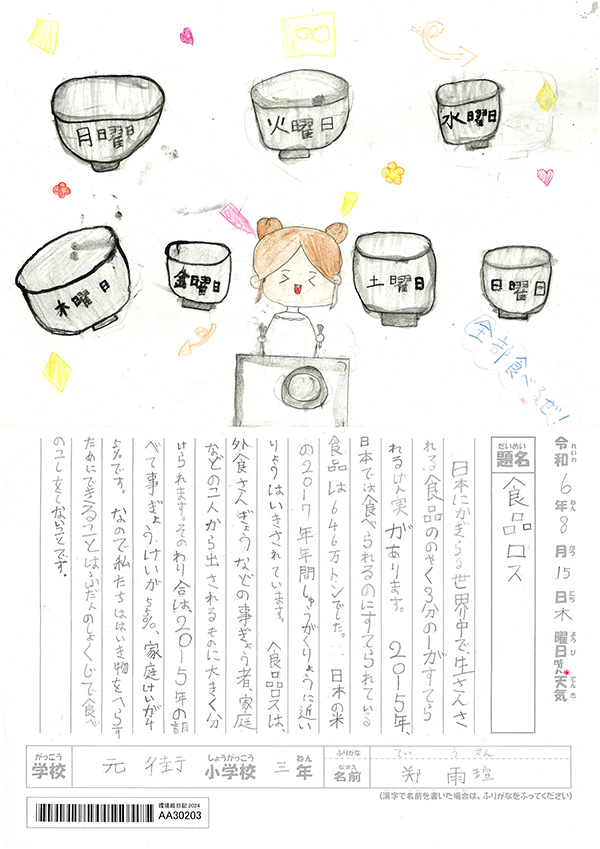 月曜日
火曜日
水曜日
木曜日
金曜日
土曜日
日曜日
全部食べるぜ!
令和6年8月15日木曜日 天気
れいわ ねん がつ にち ようび てんき
だいめい
題名
食品ロス
日本にかぎらる世界中で、生さんさ
れる食品ののやく3分の一がすてら
れるげん実があります。 2015年、
日本では食べられるのにすてられている
食品は646万トンでした。 日本の米
の2017年年間しゅうがくりょうに近い
りょうはいきされています。 食品ロスは、
外食さんぎょうなどの事ぎょう者、家庭
などの二人から出されるものに大きく分
けられます。そのわり合は2015年の調
べて事ぎょうけいが55%、家庭けいが4
5%です。 なので私たちははいき物をへらす
ためにできることはふだんのしょくじで食べ
のこしをしないことです。
がっこう しょうがっこう ねん
学校 元街 小学校 三年
ふりがな ていうせん
なまえ
名前 郑雨瑄
(漢字で名前を書いた場合は、ふりがなをふってください)
環境絵日記 2024
AA30203